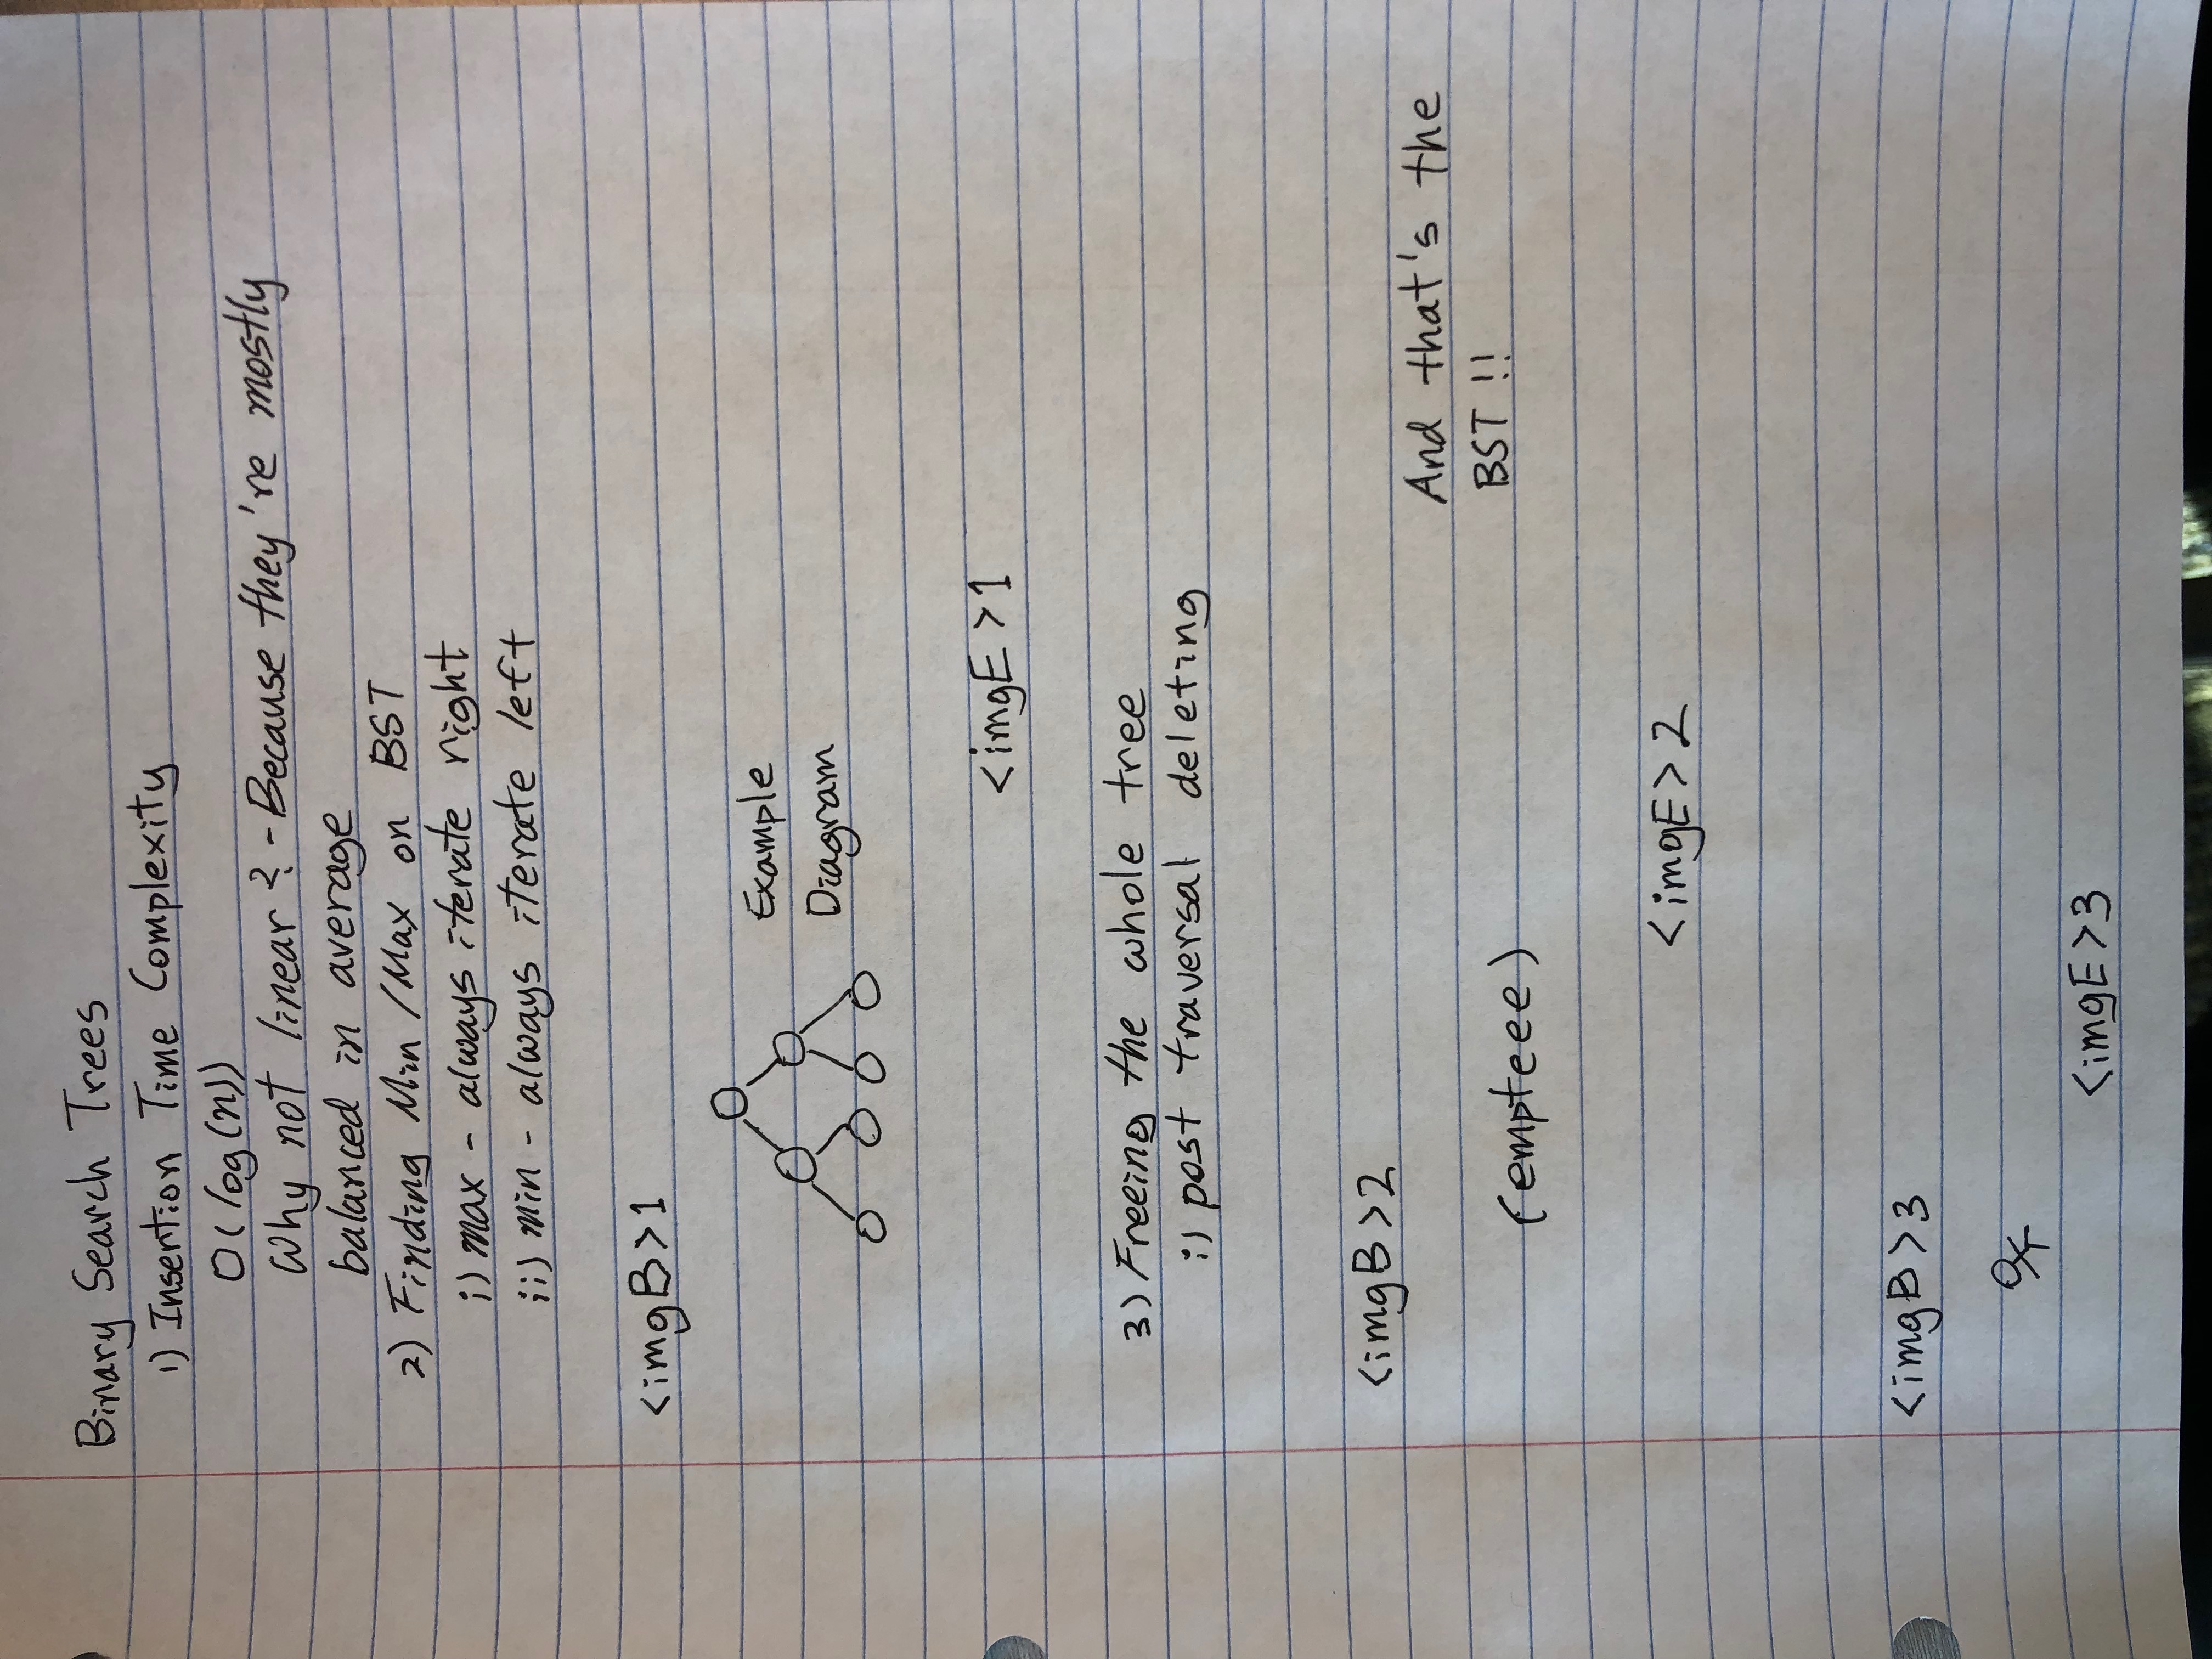 Binary Search Trees
1) Insertion Time Complexity
O(log(n))
Why not linear? - Because they're mostly
balanced in average
2) Finding Min/Max on BST
i) max - always iterate right
ii) min - always iterate left
<imgB>1
Example
Diagram
<imgE>1
3) Freeing the whole tree
i) post traversal deleting
<imgB>2
And that's the
BST!!
(empteee)
<imgE>2
<imgB>3
<imgE>3